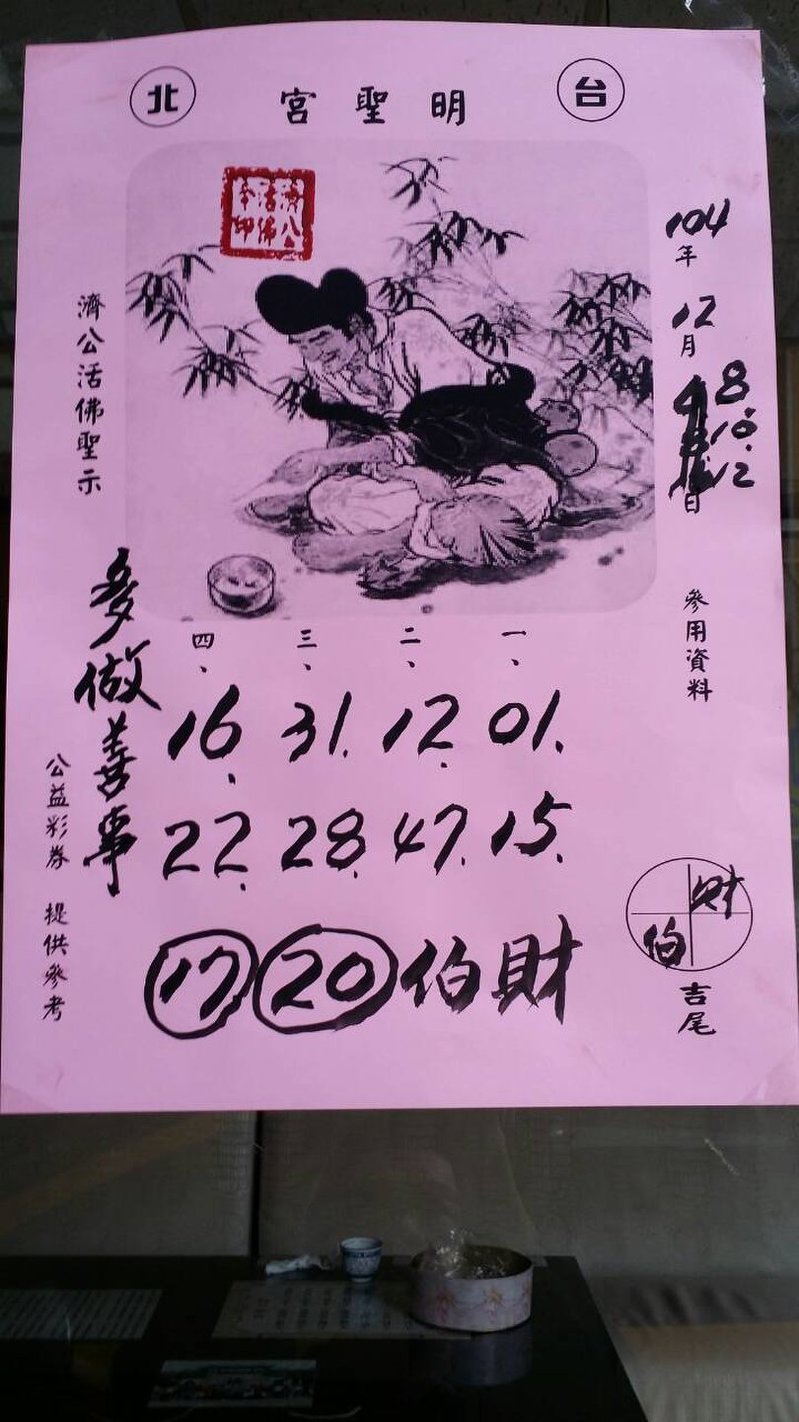 台 明聖宮 北
濟公活佛
104年12月8.10.12日
參用資料
財
伯
吉尾
一、 二、 三、 四、
01. 12. 31. 16.
15. 47. 28. 22.
財伯 20 17
濟公活佛聖示
多做善事
公益彩券 提供參考